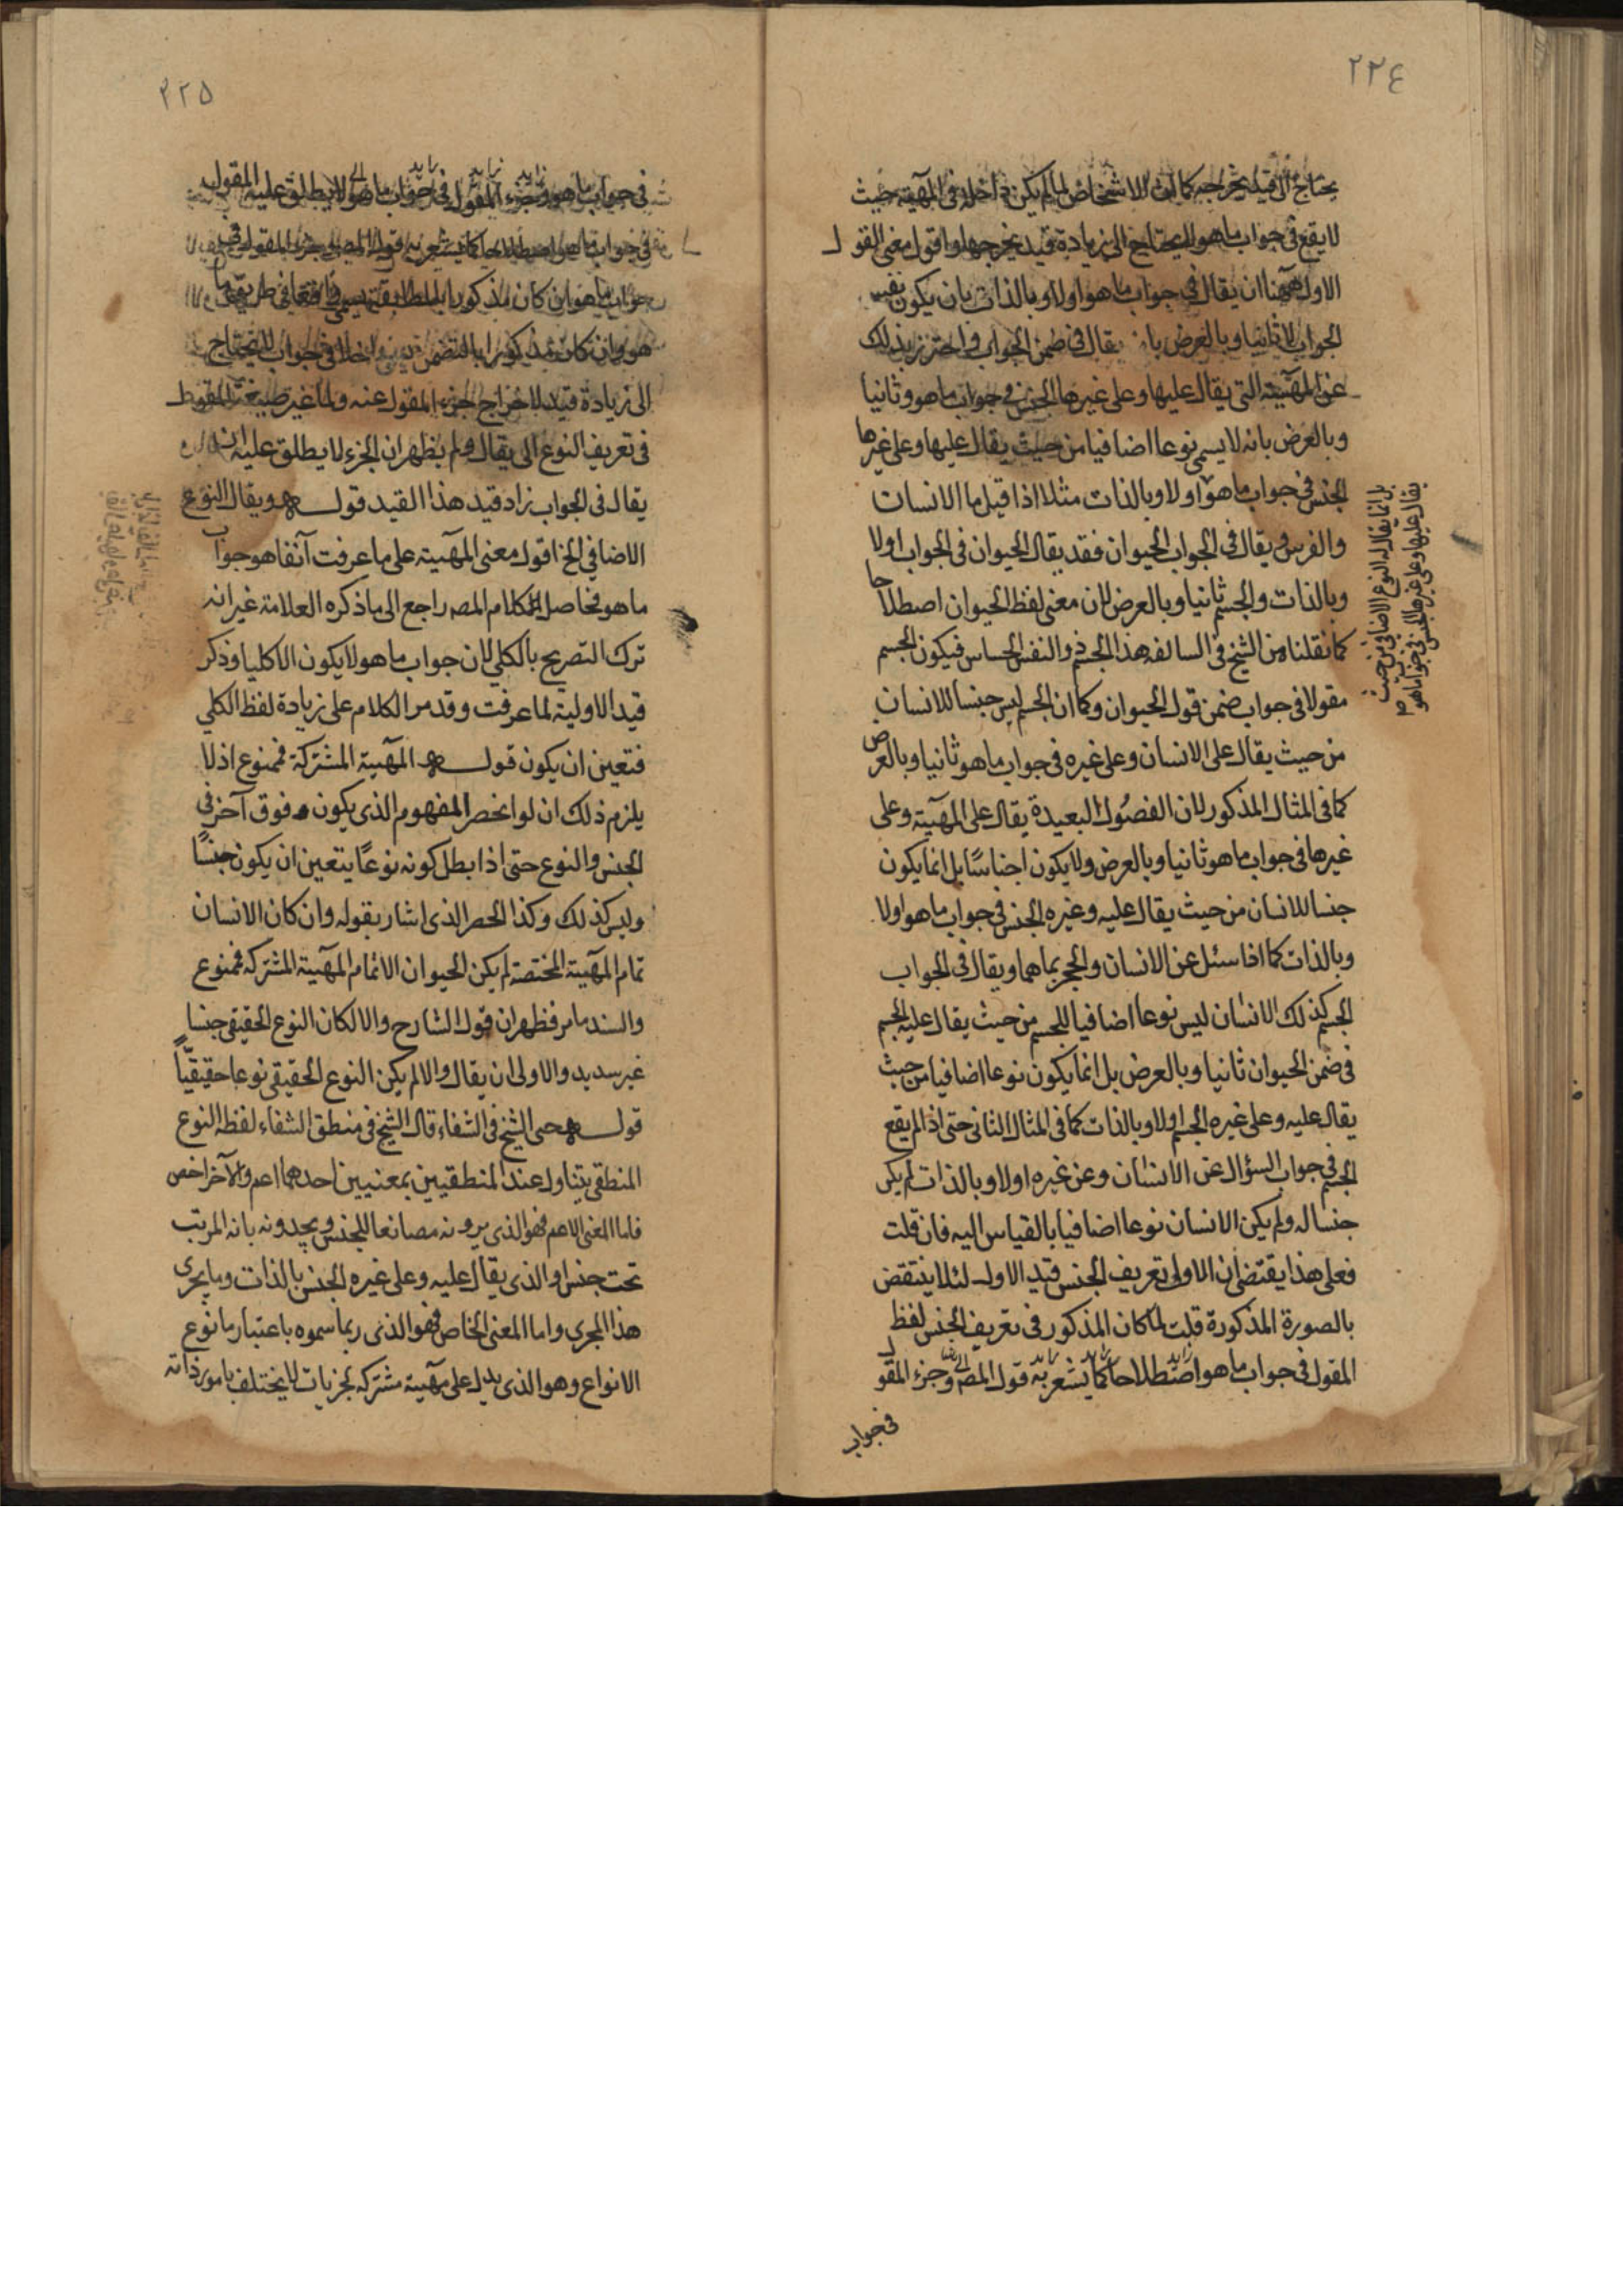 ٢٢٤
يحتاج الى قيد يخرجه كما ان الاشخاص لما لم يكن داخلة فى المهية حيث
لا يقع فى جواب ما هو لا يحتاج الى زيادة قيد يخرجها واقول معنى القول
الاول ههنا ان يقال فى جواب ما هو اولا وبالذات بان يكون نفس
الجواب لا ثانيا وبالعرض بان يقال فى ضمن الجواب واحترز بذلك
عن المهية التى يقال عليها وعلى غيرها الجنس فى جواب ما هو ثانيا
وبالعرض بانه لا يسمى نوعا اضافيا من حيث يقال عليها وعلى غيرها
الجنس فى جواب ما هو اولا وبالذات مثلا اذا قيل ما الانسان
والفرس ويقال فى الجواب الحيوان فقد يقال الحيوان فى الجواب اولا
وبالذات والجسم ثانيا وبالعرض لان معنى لفظ الحيوان اصطلاحا
كما نقلناه من الشيخ فى السالفة هذا الجسم ذو النفس الحساس فيكون الجسم
مقولا فى جواب ضمن قول الحيوان وكما ان الجسم ليس جنسا للانسان
من حيث يقال على الانسان وعلى غيره فى جواب ما هو ثانيا وبالعرض
كما فى المثال المذكور لان الفصول البعيدة يقال على المهية وعلى
غيرها فى جواب ما هو ثانيا وبالعرض ولا يكون اجناسا بل انما يكون
جنسا للانسان من حيث يقال عليه وغيره الجنس فى جواب ما هو اولا
وبالذات كما اذا سئل عن الانسان والحجر بما هما ويقال فى الجواب
الجسم كذلك الانسان ليس نوعا اضافيا للجسم من حيث يقال عليه الجسم
فى ضمن الحيوان ثانيا وبالعرض بل انما يكون نوعا اضافيا من حيث
يقال عليه وعلى غيره الجسم اولا وبالذات كما فى المثال الثانى حتى اذا لم يقع
الجسم فى جواب السؤال عن الانسان وعن غيره اولا وبالذات لم يكن
جنسا له ولم يكن الانسان نوعا اضافيا بالقياس اليه فان قلت
فعلى هذا يقتضى ان الاولى تعريف الجنس قيد الاول لئلا ينتقض
بالصورة المذكورة قلت لما كان المذكور فى تعريف الجنس لفظ
المقول فى جواب ما هو اصطلاحا كما يشعر به قول المصـ وجزء المقول
فى جواب
بل انما يقال له النوع الاضافى من حيث
يقال عليها وعلى غيرها الجنس فى جواب ما هو
٢٢٥
فى جواب ما هو وجزء المقول فى جواب ما هو لا يطلق عليه المقول
فى جواب ما هو اصطلاحا كما يشعر به قول المصـ جزء المقول فى
جواب ما هو ان كان مذكورا بالمطابقة يسمى واقعا فى طريق ما
هو وان كان مذكورا بالتضمن يسمى داخلا فى جواب لا يحتاج
الى زيادة قيد لاخراج الجزء المقول عنه ولما غير صيغة المقول
فى تعريف النوع الى يقال ولم يظهر ان الجزء لا يطلق عليه انه
يقال فى الجواب زاد قيد هذا القيد قوله ويقال النوع
الاضافي الخ اقول معنى المهية على ما عرفت آنفا هو جواب
ما هو فحاصل كلام المصـ راجع الى ما ذكره العلامة غير انه
ترك التصريح بالكلي لان جواب ما هو لا يكون الا كليا وذكر
قيد الاولية لما عرفت وقد مر الكلام على زيادة لفظ الكلي
فتعين ان يكون قوله المهية المشتركة فممنوع اذ لا
يلزم ذلك ان لو انحصر المفهوم الذى يكون فوق آخر فى
الجنس والنوع حتى اذا بطل كونه نوعًا يتعين ان يكون جنسًا
وليس كذلك وكذا الحصر الذى اشار بقوله وان كان الانسان
تمام المهية المختصة لم يكن الحيوان الا تمام المهية المشتركه فممنوع
والسند ما مر فظهر ان قول الشارح والا لكان النوع الحقيقى جنسا
غير سديد والاولى ان يقال والا لم يكن النوع الحقيقى نوعا حقيقيًّا
قوله حتى الشيخ فى الشفاء قال الشيخ فى منطق الشفاء لفظه النوع
المنطقى يتناول عند المنطقيين بمعنيين احدهما اعم والآخر اخص
فاما المعنى الاعم فهو الذى يرونه مصانعا للجنس ويحدونه بانه المرتب
تحت جنس او الذى يقال عليه وعلى غيره الجنس بالذات وما يجرى
هذا المجرى واما المعنى الخاص فهو الذى ربما سموه باعتبار ما نوع
الانواع وهو الذى يدل على مهية مشتركه لجزئيات لا يختلف بامور ذاته